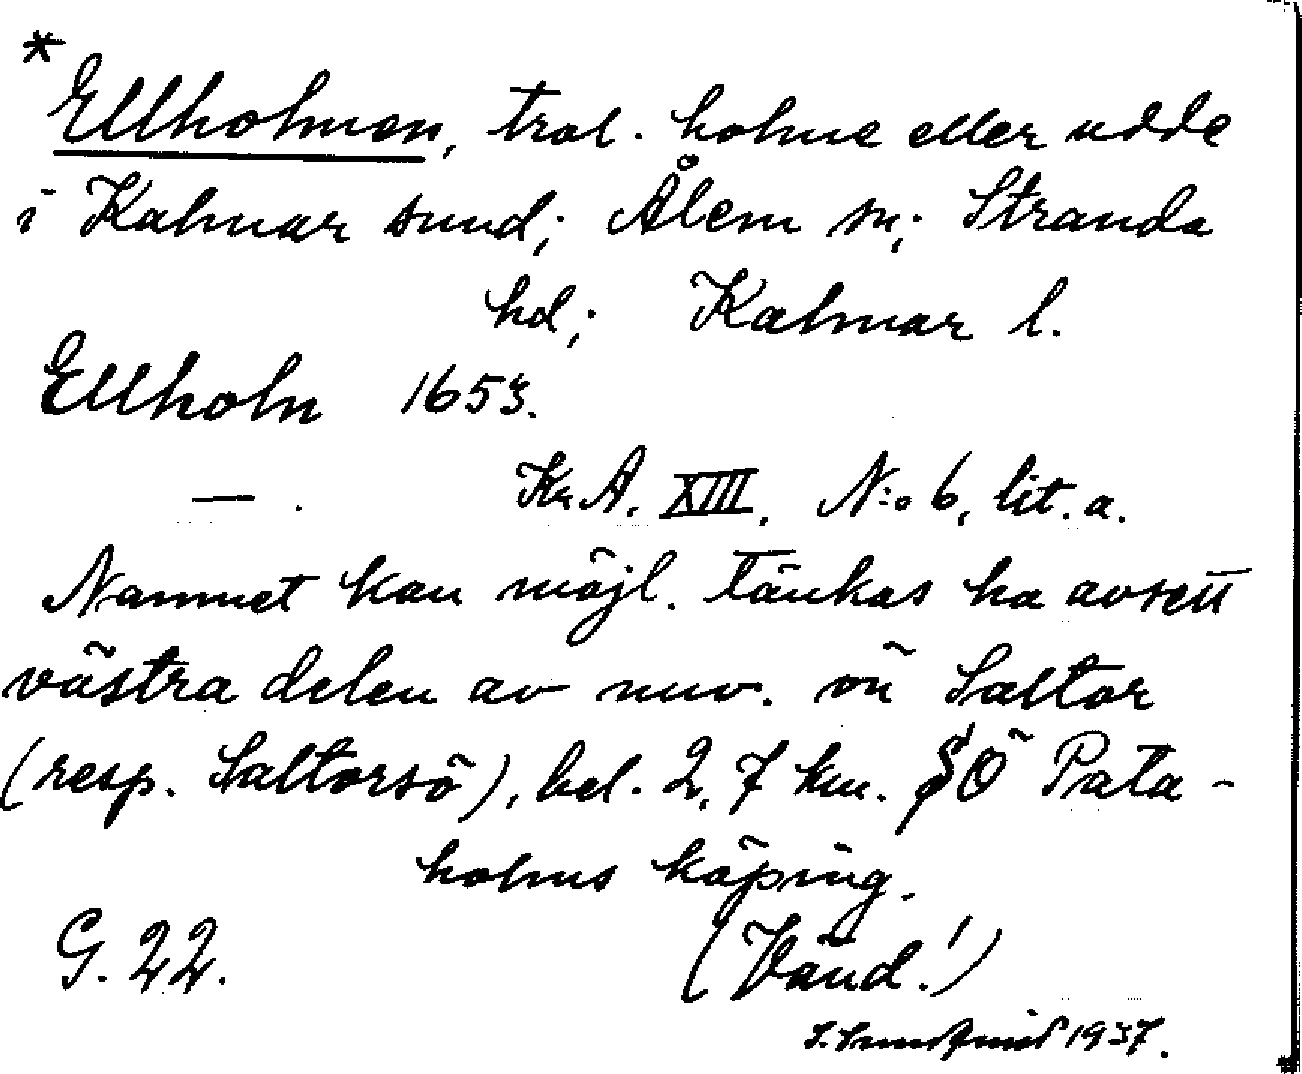 *
Ellholmen, trol. holme eller udde
i Kalmar sund; Ålem sn; Stranda
hd; Kalmar l.
Ellholm 1653.
— . Kr.A. XIII. N:o 6, lit. a.
Namnet kan möjl. tänkas ha avsett
västra delen av nuv. ön Saltor
(resp. Saltorsö), bel. 2,7 km. SÖ Pata-
holms köping.
G. 22. (Vänd!)
1937.